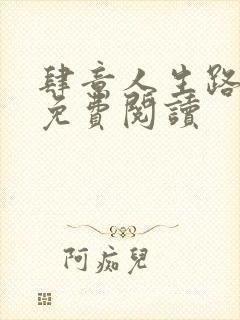 肆意人生路
免費閱讀
阿痴兒